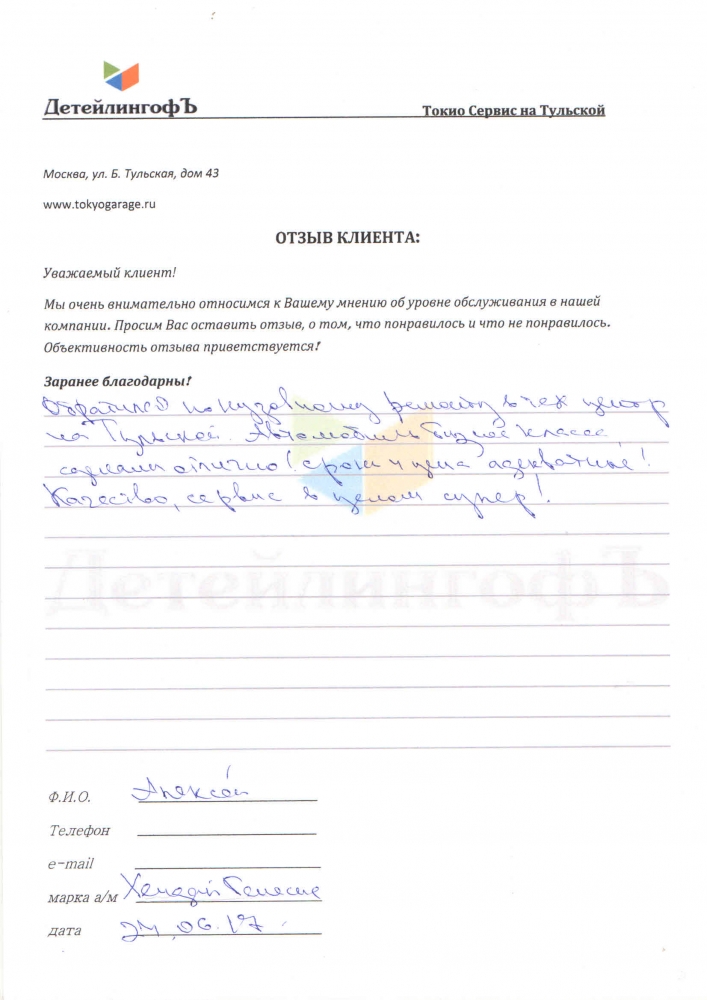 ДетейлингофЪ
Токио Сервис на Тульской
Москва, ул. Б. Тульская, дом 43
www.tokyogarage.ru
ОТЗЫВ КЛИЕНТА:
Уважаемый клиент!
Мы очень внимательно относимся к Вашему мнению об уровне обслуживания в нашей
компании. Просим Вас оставить отзыв, о том, что понравилось и что не понравилось.
Объективность отзыва приветствуется!
Заранее благодарны!
Обратился по кузовному ремонту в центр
на Тульской. Автомобиль бизнес класса,
сделали отлично! сроки и цена адекватные!
Качество, сервис в целом супер!.
ДетейлингофЪ
Ф.И.О. Алексей
Телефон
e-mail
марка а/м Хендай Генесис
дата 24 06.17